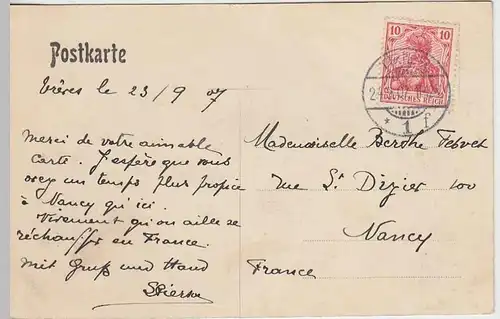 Postkarte
10
DEUTSCHES REICH
Trèves le 23/9 07
Merci de votre aimable
carte. J'espère que vous
avez un temps plus propice
à Nancy qu'ici.
Vivement qu'on aille se
réchauffer en France.
Mit Gruß und Hand
Mademoiselle Berthe
rue St Dizier 100
Nancy
France